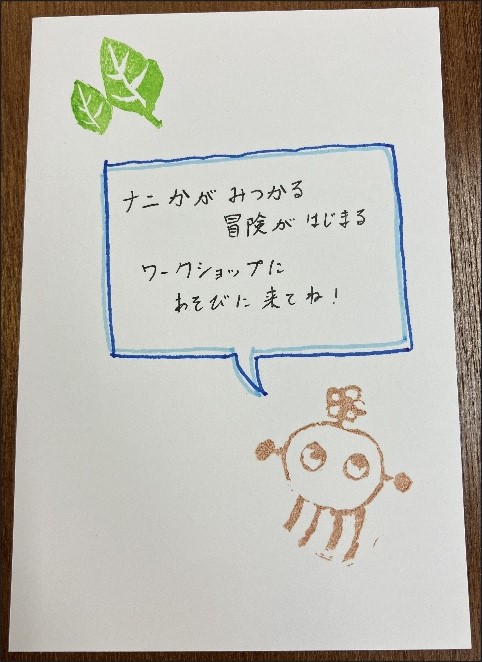 ナニかがみつかる
冒険がはじまる
ワークショップに
あそびに来てね！